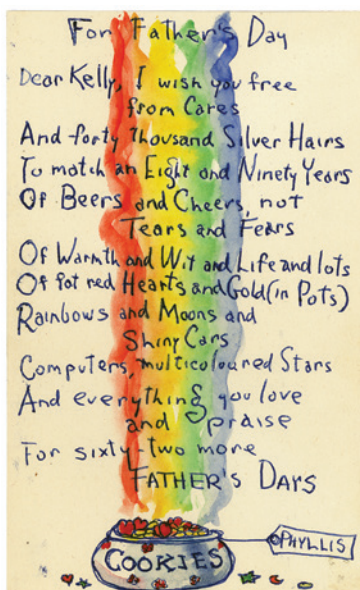 For Father's Day
Dear Kelly, I wish you free
from Cares
And forty thousand Silver Hairs
To match an Eight and Ninety Years
Of Beers and Cheers, not
Tears and Fears
Of Warmth and Wit and Life and lots
Of fat red Hearts and Gold (in Pots)
Rainbows and Moons and
Shiny Cars
Computers, multicoloured Stars
And everything you love
and praise
For sixty-two more
FATHER'S DAYS
PHYLLIS
COOKIES